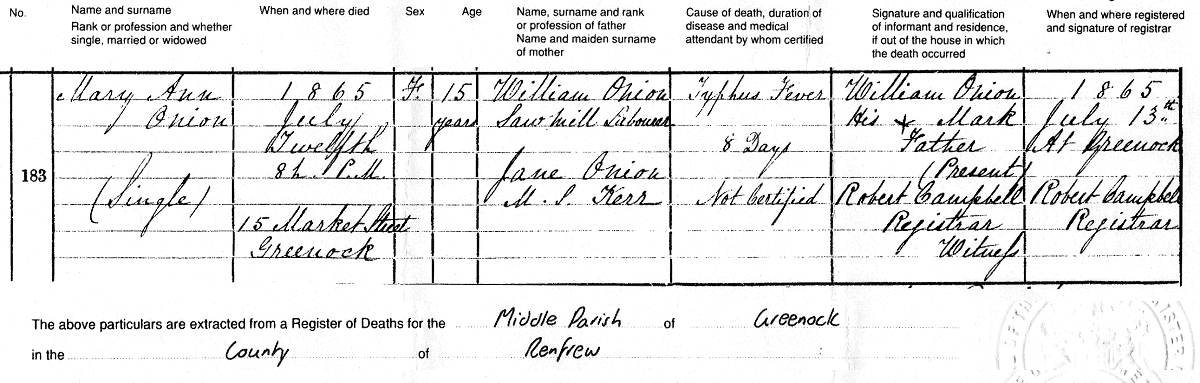 No.
Name and surname
Rank or profession and whether
single, married or widowed
When and where died
Sex
Age
Name, surname and rank
or profession of father
Name and maiden surname
of mother
Cause of death, duration of
disease and medical
attendant by whom certified
Signature and qualification
of informant and residence,
if out of the house in which
the death occurred
When and where registered
and signature of registrar
183
Mary Ann
Onion
(Single)
1865
July
Twelfth
8h. P.M.
15 Market Street
Greenock
F.
15
years
William Onion
Sawmill Labourer
Jane Onion
M. S. Kerr
Typhus Fever
8 Days
Not Certified
William Onion
His x Mark
Father
(Present)
Robert Campbell
Registrar
Witness
1865
July 13th
At Greenock
Robert Campbell
Registrar
The above particulars are extracted from a Register of Deaths for the Middle Parish of Greenock
in the County of Renfrew